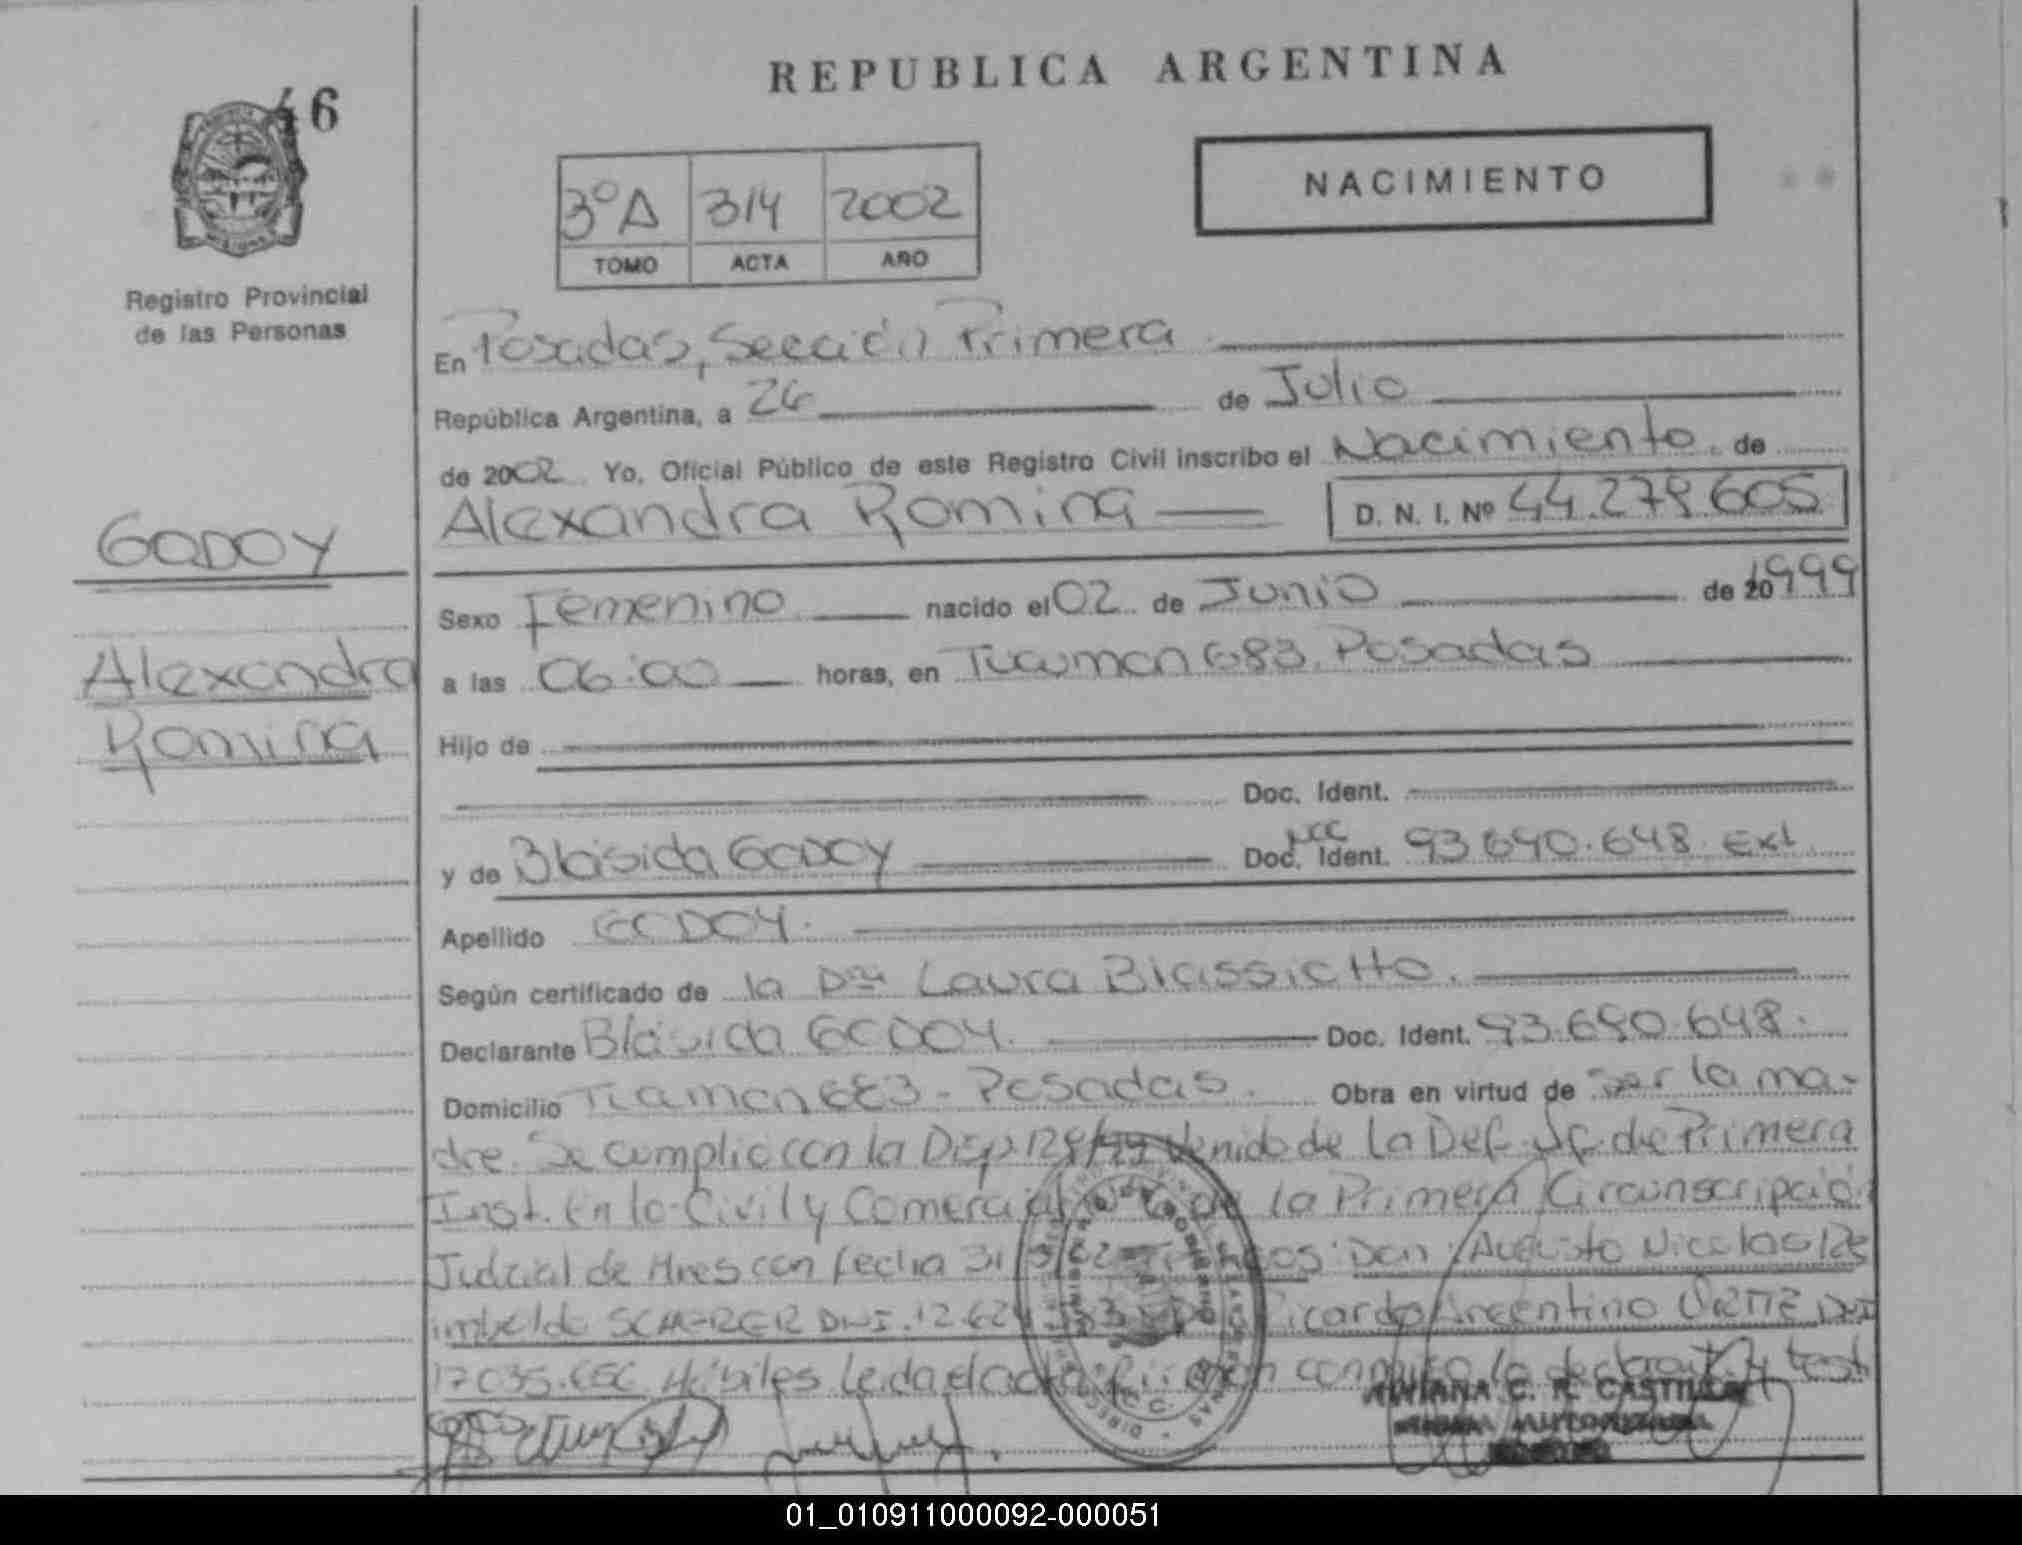 REPUBLICA ARGENTINA
46
NACIMIENTO
3ºA 314 2002
TOMO ACTA AÑO
Registro Provincial
de las Personas
En Posadas, Sección Primera
República Argentina, a 26 de Julio
de 2002 Yo, Oficial Público de este Registro Civil inscribo el Nacimiento de
Alexandra Romina D. N. I. Nº 44.278.605
GODOY
Alexandra
Romina
Sexo Femenino nacido el 02 de Junio de 20 1999
a las 06:00 horas, en Tucuman 683 Posadas
Hijo de
Doc. Ident.
y de Blásida GODOY Doc. Ident. 93.690.648 Ext
Apellido GODOY.
Según certificado de la Dra Laura Biassictto.
Declarante Blásida GODOY. Doc. Ident. 93.690.648.
Domicilio Tucuman 683 - Posadas. Obra en virtud de ser la ma-
dre. Se cumplio con la Disp. 128/99 venido de la Def. de Primera
Inst. en lo Civil y Comercial de la Primera Circunscripción
Judicial de Mnes con fecha 31 Don: Augusto Nicolas
SCHERER DNI. 12.624 Ricardo Argentino DNI
17.035.656 Hábiles Leida el acta firman conmigo la declarante y test
ADRIANA C. R. CASTILLO
01_010911000092-000051